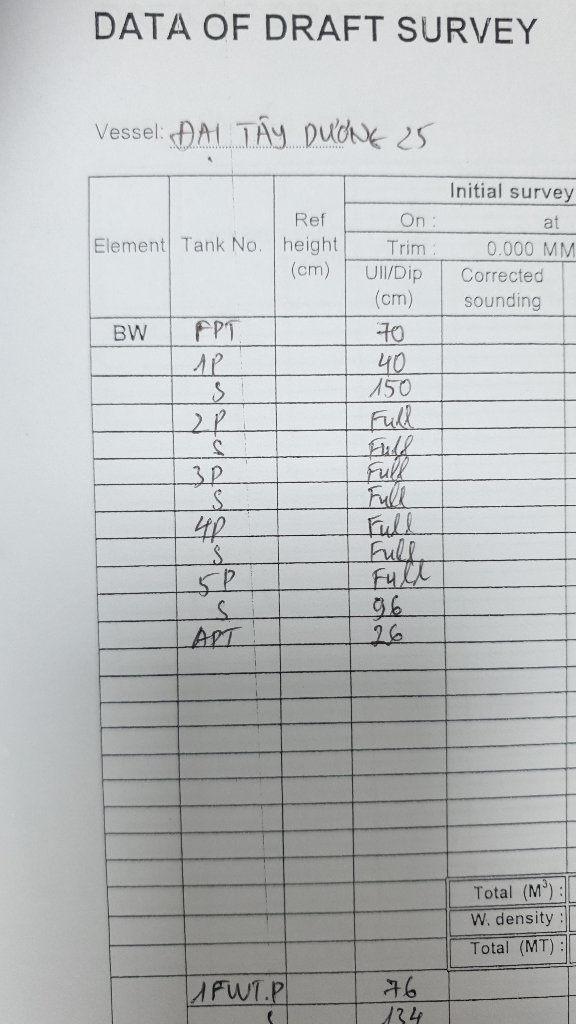 DATA OF DRAFT SURVEY
Vessel: ĐẠI TÂY DƯƠNG 25
Initial survey
On : at
Trim : 0.000 MM
Element Tank No. Ref height (cm) Ull/Dip (cm) Corrected sounding
BW FPT 70
1P 40
S 150
2P Full
S Full
3P Full
S Full
4P Full
S Full
5P Full
S 96
APT 26
Total (M³) :
W. density :
Total (MT) :
1FWT.P 76
S 134